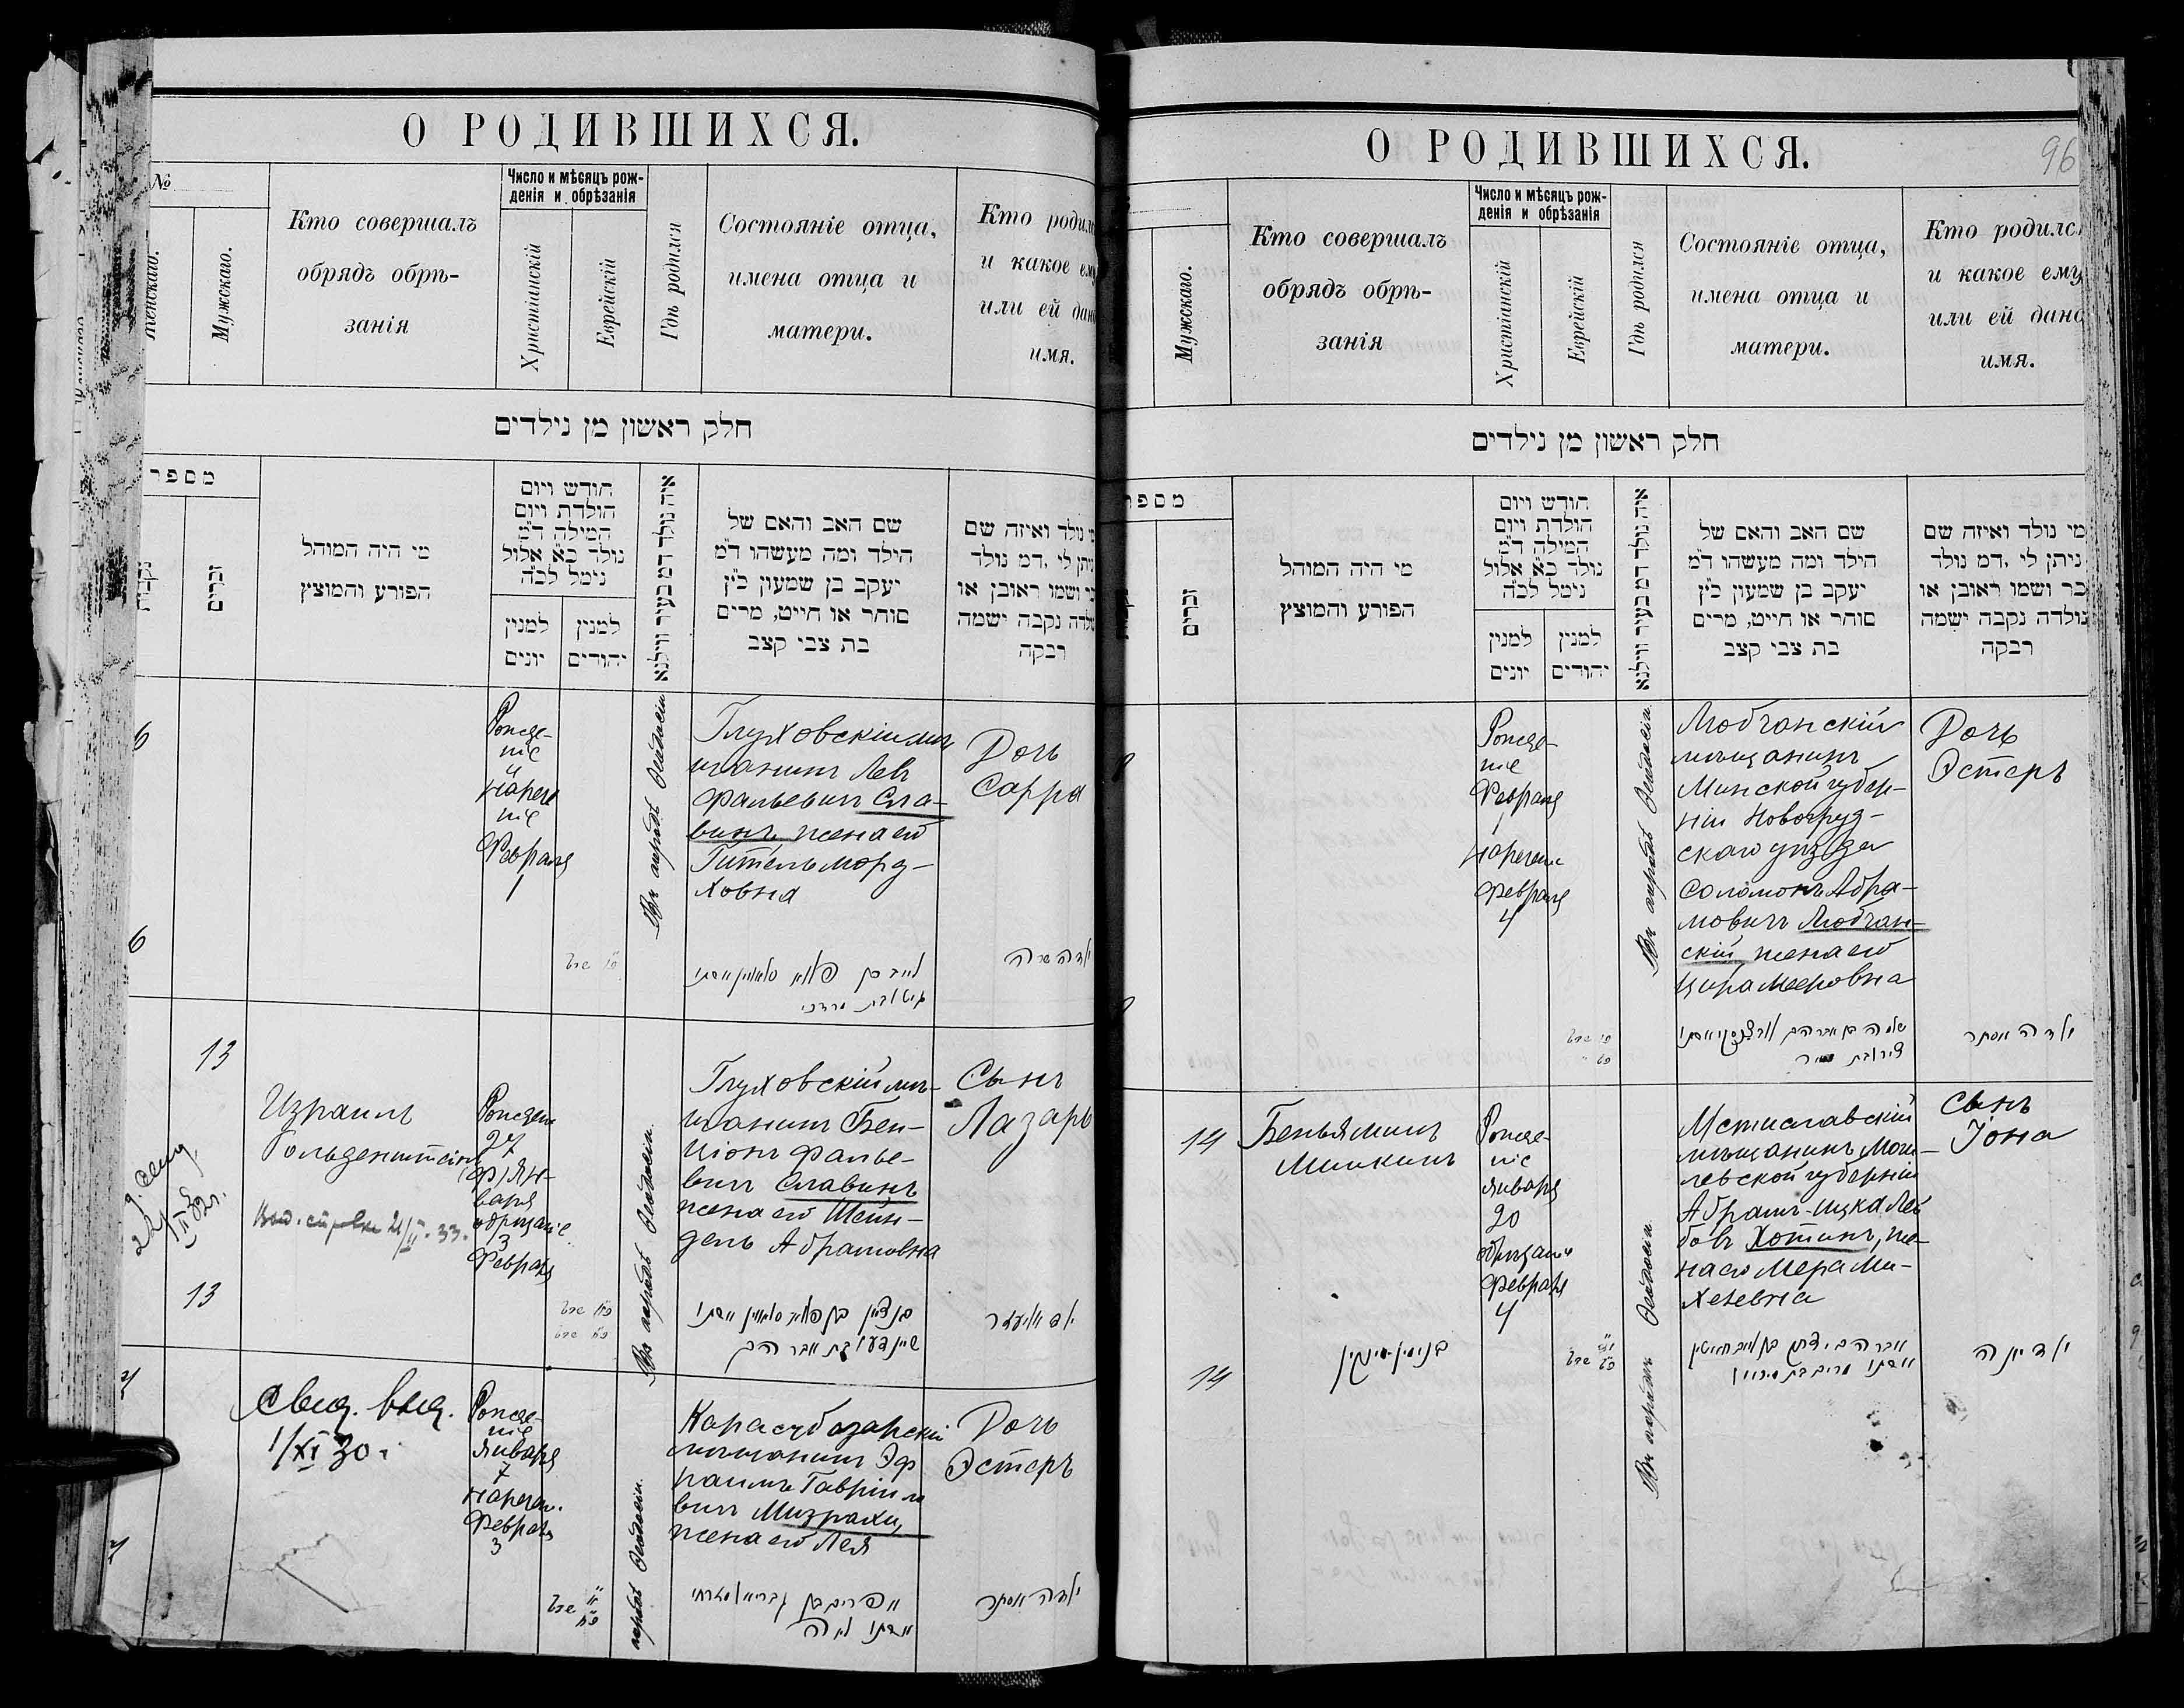 О РОДИВШИХСЯ.
№
Женскаго.
Мужскаго.
Кто совершалъ
обрядъ обрѣ-
занія
Число и мѣсяцъ рож-
денія и обрѣзанія
Христіанскій
Еврейскій
Гдѣ родился
Состояніе отца,
имена отца и
матери.
Кто родилс
и какое ему
или ей дано
имя.
חלק ראשון מן נילדים
מספר
נקבות
זכרים
מי היה המוהל
הפורע והמוצץ
חודש ויום
הולדת ויום
המילה ד״מ
נולד כ״א אלול
נימל לכ״ה
למנין
יונים
למנין
יהודים
איה נולד דמ בעיר ווילנא
שם האב והאם של
הילד ומה מעשהו ד״מ
יעקב בן שמעון כ״ץ
סוחר או חייט, מרים
בת צבי קצב
מי נולד ואיזה שם
ניתן לי, דמ נולד
זכר ושמו ראובן או
נולדה נקבה ישמה
רבקה
6
Рожде-
ніе
и
нарече
ніе
Февраля
1
Въ городѣ Ѳеодосіи
Глуховскій мѣ
щанинъ Лев
Фальевич Сла-
винъ, жена его
Гитель Морд-
ховна
Дочь
Сарра
6
שבט
גיטל בת מרדכי
ילדה שרה
13
Израиль
Гольденштейн
Рожден
27
Ян-
варя
обрѣзаніе
3
Февраля
Въ городѣ Ѳеодосіи.
Глуховскій мѣ-
щанинъ Бен-
ціонъ Фалье-
вич Славинъ
жена его Шейн-
дель Абрамовна
Сынъ
Лазарь
13
שבט
שבט
בן ציון בן פאליא סלאווין ואשתו
שיינדעל בת אברהם
ילד אליעזר
7
Свид. выд.
1/XI 30 г.
Рожде-
ніе
Января
7
Наречен.
Февраля
3
городѣ Ѳеодосіи.
Карасубазарскій
мѣщанинъ Эф
раимъ Гавріило
вич Мизрахи,
жена его Лея
Дочь
Эстеръ
7
שבט
אפרים בן גבריאל מזרחי
ואשתו לאה
ילדה אסתר
О РОДИВШИХСЯ.
96
Мужскаго.
Кто совершалъ
обрядъ обрѣ-
занія
Число и мѣсяцъ рож-
денія и обрѣзанія
Христіанскій
Еврейскій
Гдѣ родился
Состояніе отца,
имена отца и
матери.
Кто родилс
и какое ему
или ей дано
имя.
חלק ראשון מן נילדים
מספר
זכרים
מי היה המוהל
הפורע והמוצץ
חודש ויום
הולדת ויום
המילה ד״מ
נולד כ״א אלול
נימל לכ״ה
למנין
יונים
למנין
יהודים
איה נולד דמ בעיר ווילנא
שם האב והאם של
הילד ומה מעשהו ד״מ
יעקב בן שמעון כ״ץ
סוחר או חייט, מרים
בת צבי קצב
מי נולד ואיזה שם
ניתן לי, דמ נולד
זכר ושמו ראובן או
נולדה נקבה ישמה
רבקה
Рожде-
ніе
Февраля
1
Наречен
Февраля
4
Въ городѣ Ѳеодосіи.
Любчанскій
мѣщанинъ
Минской губер-
ніи Новогруд-
скаго уѣзда
Соломонъ Абра-
мовичъ Любчан-
скій жена его
Цира Мееровна
Дочь
Эстеръ
שבט
ילדה אסתר
14
Беньяминъ
Минкинъ
Рожде-
ніе
Января
20
обрѣзаніе
Февраля
4
Въ городѣ Ѳеодосіи.
Мстиславскій
мѣщанинъ Моги-
левской губерніи
Абрамъ-Ицка Лей
бов Хотинъ, же-
на его Мера Ми-
хелевна
Сынъ
Іона
14
בנימין מינקין
שבט
ילד יונה